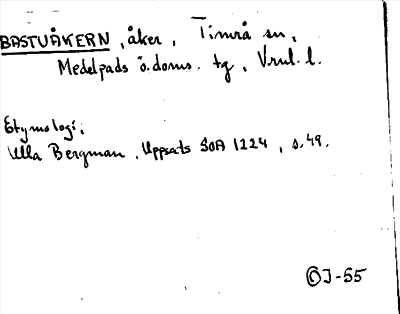 BASTUÅKERN, åker, Timrå sn,
Medelpads ö. doms. tg, Vnl. l.
Etymologi;
Ulla Bergman, Uppsats SOA 1224, s. 49.
ÖJ-55